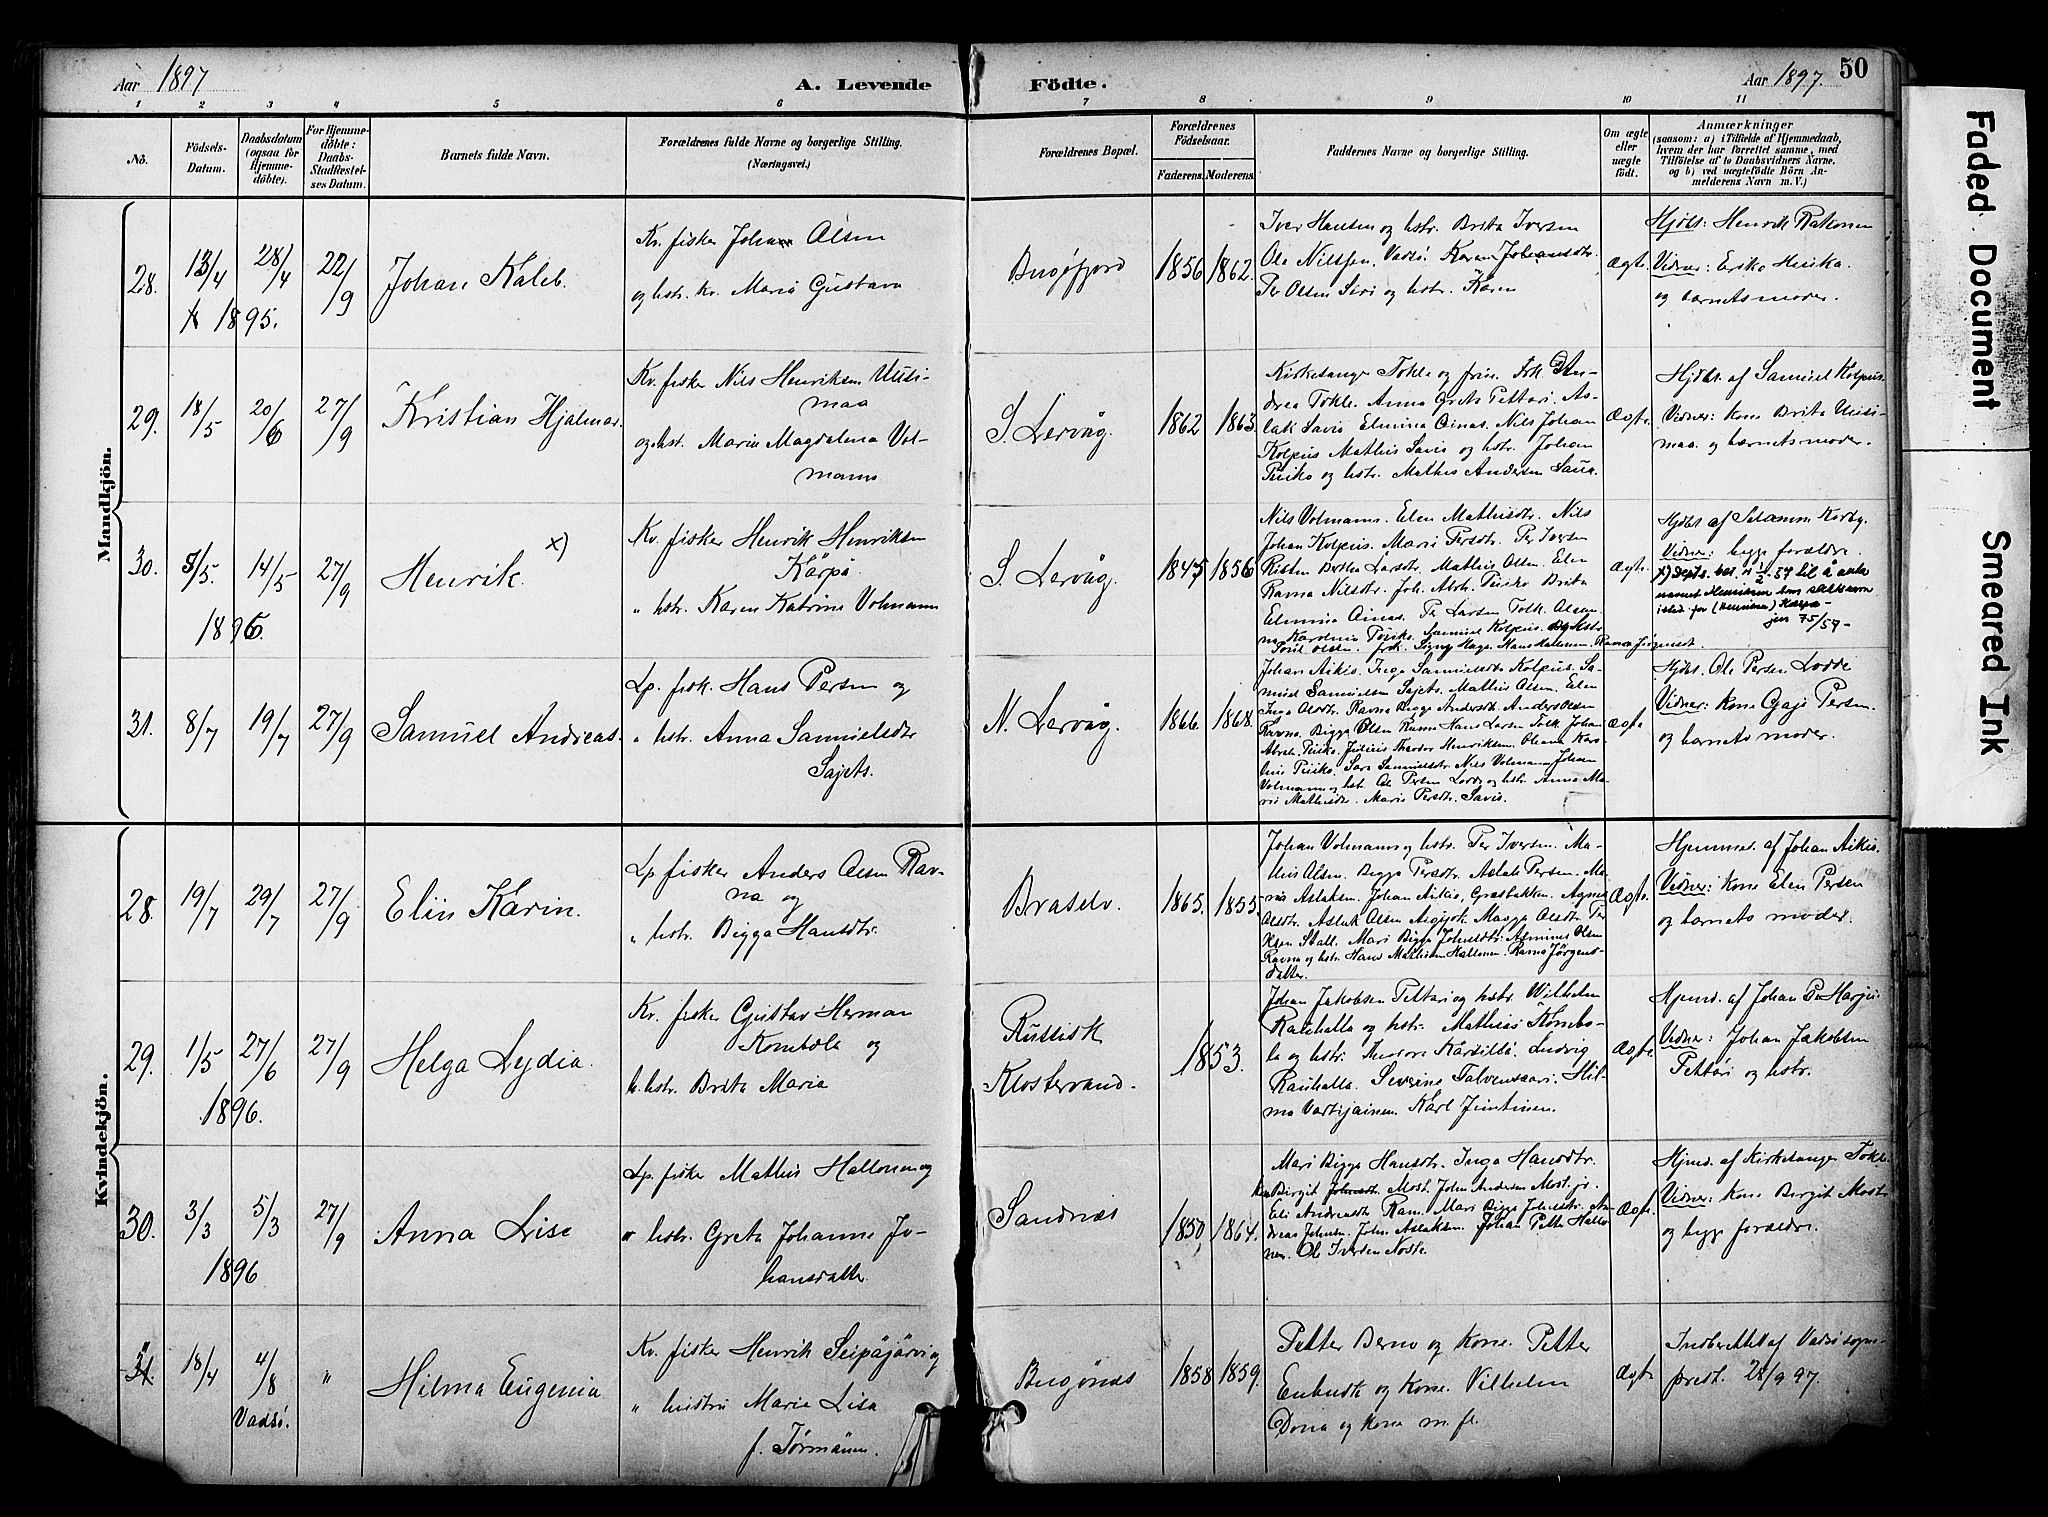 Aar 1897
A. Levende
Födte.
Aar 1897.
50
1 2 3 4 5 6 7 8 9 10 11
No.
Födsels-
Datum.
Daabsdatum
(ogsaa för
Hjemme-
döbte).
For Hjemme-
döbte:
Daabs-
Stadfæstel-
ses Datum.
Barnets fulde Navn.
Forældrenes fulde Navne og borgerlige Stilling.
(Næringsvei.)
Forældrenes Bopæl.
Forældrenes
Födselsaar.
Faderens. Moderens.
Faddernes Navne og borgerlige Stilling.
Om ægte
eller
uægte
født.
Anmærkninger
(saasom: a) i Tilfælde af Hjemmedaab,
hvem der har forrettet samme, med
Tilföielse af to Daabsvidners Navne,
og b) ved uægtefödte Börn An-
melderens Navn m. V.)
Mandkjön.
28.
13/4
28/4
22/9
1895.
Johan Kaleb.
Kv. fisker Johan Olsen
og hstr. kv. Maria Gustava
Bugøfjord
1856
1862.
Iver Hansen og hstr. Brita Iversen
Ole Nilsen, Vadsö. Karen Johansdtr.
Per Olsen Siri og hstr. Karen
ægte.
Hjdbt: Henrik Ratkonen
Vidner: Eriko
og barnets moder.
29.
18/5
20/6
27/9
Kristian Hjalmar.
Kv. fisker Nils Henriksen Uusi-
maa
og hst. Maria Magdalena Vol-
mann
S. Lervåg.
1862
1863.
Kirkesanger Tokle og frue. Frk. An-
drea Tokle. Anna Greta Pettari. As-
lak Savio Elmina Oinas. Nils Johan
Kolpus Mathis Savio og hstr. Johan
Piiko og hstr. Mathis Andersen Saua.
ægte.
Hjdbt. af Samuel Kolpus.
Vidner: kone Brita Uusi-
maa og barnets moder.
30.
5/5.
14/5
27/9
1896.
Henrik x)
Kv. fisker Henrik Henriksen
Karpa
" hstr. Karen Katrine Volmann
S. Lervåg.
1845
1856
Nils Volmann. Elen Mathisdtr. Nils
Johan Kolpus. Marie Persdtr. Per Iversen
Kisten Berthe Larsdtr. Mathis Olsen. Elen
Ravna Nilsdtr. Joh. Abrh. Piiko Brita
Elmina Oinas. Per Larsen Tolk. Olsen.
Karolina Piiko. Samuel Kolpus og hstr.
Olsen. frk. Signy Hage. Hans Ravna Jørgensdt.
ægte.
Hjdbt af Salamon Korbg.
Vidner: begge forældre.
navnet Henriksen som slektsnavn
isteden for (Henriksen) Karpa
jnr 75/57-
31.
8/7
19/7
27/9
Samuel Andreas.
Lp. fisk. Hans Persen og
" hstr. Anna Samuelsdtr
Sajets.
N. Lervåg.
1866.
1868.
Johan Aikio. Inga Samuelsdtr Kolpus. Sa-
muel Samuelsen Sajets. Mathis Olsen. Elen
Inga Olsdtr. Ravna Bigga Andersdtr. Anders Olsen
Ravna. Bigga Olsen Ravna Hans Larsen Tolk. Johan
Abrh. Piiko. Julius Theodor Henriksen. Oliana Karo-
line Piiko. Sara Samuelsdtr. Nils Volmann. Johan
Volmann og hst. Ole Persen Lodde og hstr. Anna Ma-
rie Mathisdtr. Marie Persdtr. Savio.
ægte.
Hjdbt. Ole Persen Lodde
Vidner: kone Gaje Persen
og barnets moder.
Kvindekjön.
28.
19/7
29/7
27/9
Eliin Karin.
Lp fisker Anders Olsen Rav-
na og
" hstr. Bigga Hansdtr.
Braselv.
1865.
1855.
Johan Volmann og hstr. Per Iversen. Ma-
this Olsen. Bigga Persdtr. Aslak Persen. Ma-
ria Aslaksen. Johan Aikio, Græsbakken. Agnes
Olsdtr. Aslak Olsen Aigijok. Magga Olsdtr. Per
Olsen Stall. Mari Bigga Johnsdtr. Asminus Olsen
Ravna og hstr. Hans Mathisen Hallonen. Ravna Jørgens-
datter.
Ægte.
Hjemmed. af Johan Aikio.
Vidner: Kone Elen Persen
og barnets moder.
29.
1/5
27/6
27/9
1896.
Helga Lydia.
Kv. fisker Gustav Herman
Kombola og
h. hstr. Brita Maria
Russisk
Klostervand.
1853.
Johan Jakobsen Pettari og hstr. Wilhelm
Rauhalla og hstr. Mathias Kömbo-
la og hstr. Theodor Karsillä. Ludvig
Rauhalla. Severine Talvensaari. Hil-
ma Vartijainen. Karl Juntinen.
Ægte.
Hjmd. af Johan P. Harju
Vidner: Johan Jakobsen
Pettäri og hstr.
30.
3/3
5/3
27/9
1896
Anna Lise
Lp. fisker Mathis Hallonen og
" hstr. Greta Johanne Jo-
hansdatter
Sandnæs
1850
1864.
Mari Bigga Hansdtr. Inga Hansdtr.
Birgit Johnsdtr. Most. John Andersen Most. jr.
Eli Andreasdtr Ram. Mari Bigga Johnsdtr. An-
dreas Johnsen. John Aslaksen. Johan Petter Hallo-
nen. Ole Iversen Noste.
Ægte.
Hjmd. af Kirkesanger Tokle.
Vidner: Kone Birgit Most
og begge forældre.
31.
18/4
4/8
Vadsö.
"
Hilma Eugenia
Kv. fisker Henrik Seipäjärvi og
" hustru Maria Lisa
f. Törmänen.
Bugönæs
1858
1859.
Petter Berno og Kone. Petter
og Kone. Vilhelm
Dona og Kone m. fl.
Ægte.
Indberettet af Vadsö sogne-
prest. 28/9 97.
Faded Document
Smeared Ink